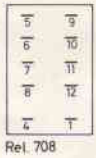 5 9
6 10
7 11
8 12
4 1
Rel. 708